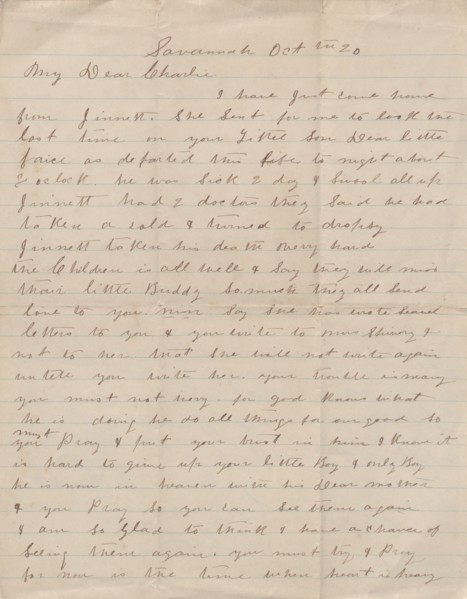 Savannah Oct th 20
My Dear Charlie
I have Just come home
from Jinnett. She Sent for me to look the
last time on your Littel Son Dear little
as departed this life to night about
8 oclock. he was Sick 2 day & Swool all up
Jinnett had 2 doctors they Said he had
taken a cold & turned to dropsy
Jinnett taken his death overy hard
the Children is all well & Say they will miss
thair little Buddy So much they all Send
love to you. Say She has wrote
letters to you & you write to mrs &
not to her that She will not write again
untell you write her. your trouble is many
you must not wory. for god knows what
he is doing he do all things for our good So
you must Pray & put your trust in him I know it
is hard to give up your little Boy & only Boy
he is now in heaven with his Dear mother
& you Pray So you can See them again
I am So Glad to think I have a chance of
Seeing them again. you must try & Pray
for now is the time when heart is heavy